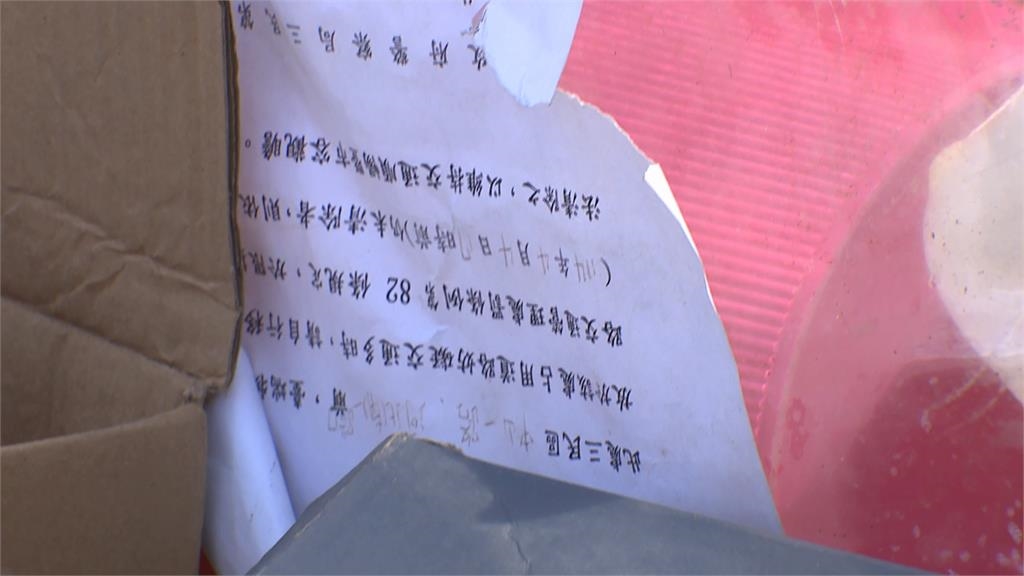 此處三民區 中山一路 前，臺端
放於該處占用道路妨礙交通多時，請自行移
路交通管理處罰條例第 82 條規定，於限
(114年4月4日 時前)仍未清除者，則依
法清除之，以維持交通順暢暨市容觀瞻。
政府警察局三民第